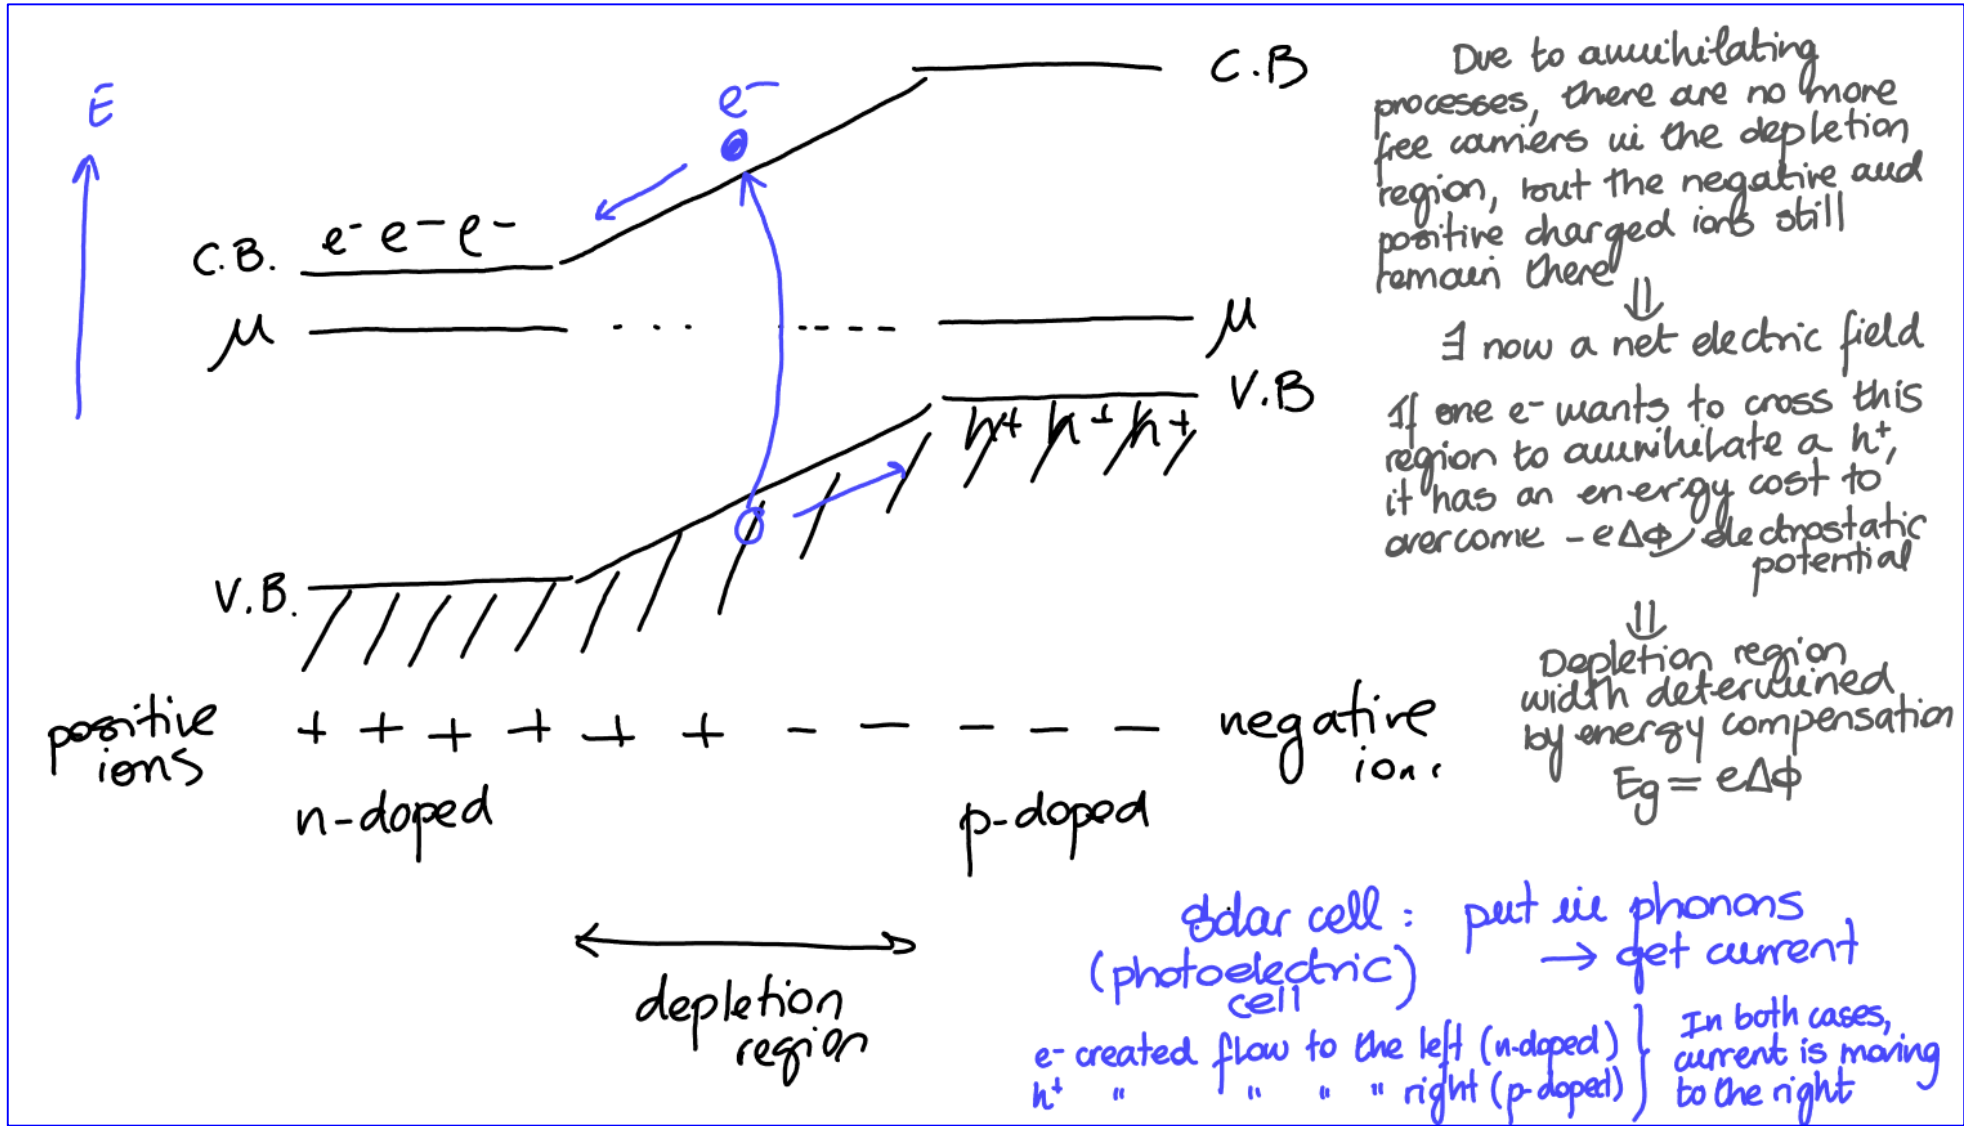 E
e⁻
C.B
C.B. e⁻ e⁻ e⁻
μ
μ
V.B
h⁺ h⁺ h⁺
V.B.
positive
ions
+ + + + + + - - - - -
negative
ion.
n-doped
p-doped
depletion
region
Due to annihilating
processes, there are no more
free carriers in the depletion
region, but the negative and
positive charged ions still
remain there
⇓
∃ now a net electric field
If one e⁻ wants to cross this
region to annihilate a h⁺,
it has an energy cost to
overcome -eΔϕ, electrostatic
potential
⇓
Depletion region
width determined
by energy compensation
Eg = eΔϕ
Solar cell: put in phonons
(photoelectric → get current
cell)
e⁻ created flow to the left (n-doped)
h⁺ " " " " right (p-doped)
In both cases,
current is moving
to the right